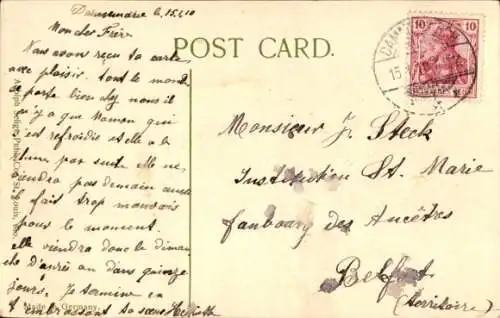 Dannemarie le, 15.1.10
Mon cher Frère
Nous avons reçu ta carte
avec plaisir. tout le monde
se porte bien chez nous il
n'y a que Maman qui
est refroidie et elle a la
par suite elle ne
viendra pas demain
il fait trop mauvais
pour le moment.
elle viendra donc le diman
che d'après ou dans quinze
jours. Je termine en
t'embrassant ta sœur
POST CARD.
10 10
15
Monsieur J. Steck
Institution St. Marie
faubourg des Ancêtres
Belfort
(territoire)
Adolph Selige Pub. Co., St. Louis,
Made in Germany